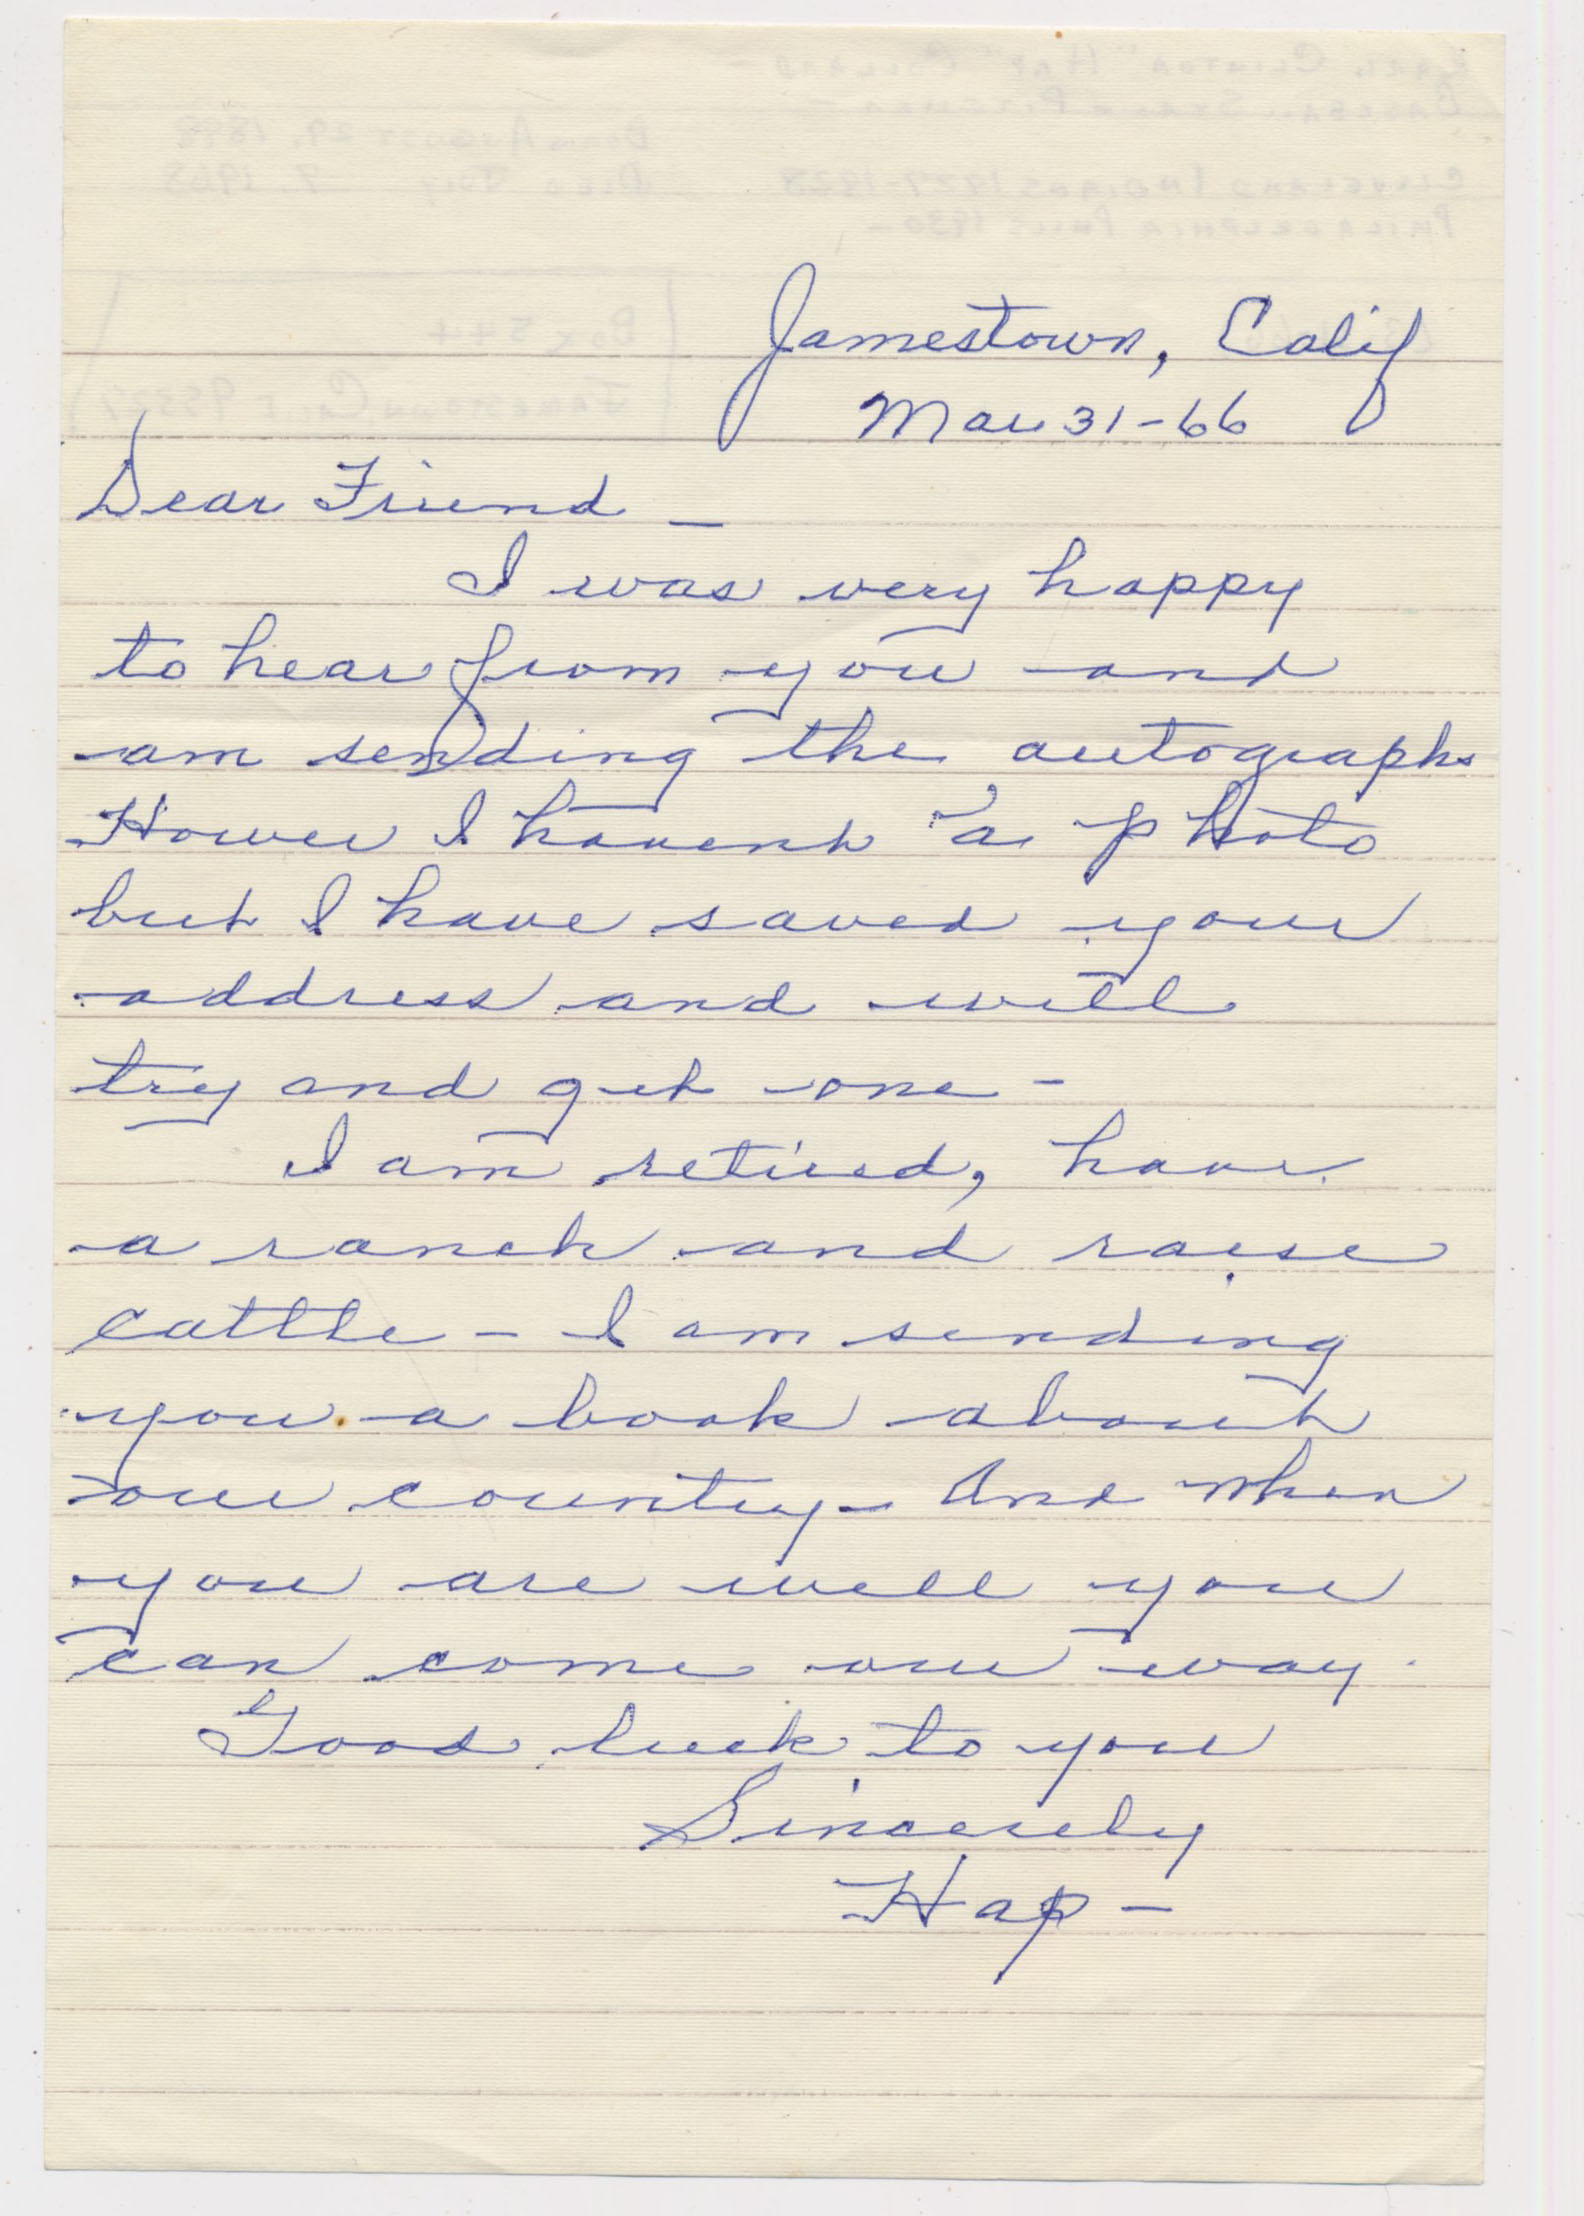 Jamestown, Calif
Mar 31-66
Dear Friend -
I was very happy
to hear from you and
am sending the autographs
Howev I havent a photo
but I have saved your
address and will
try and get one -
I am retired, have
a ranch and raise
cattle - I am sending
you a book about
our country - And when
you are well you
can come our way.
Good luck to you
Sincerely
Hap -